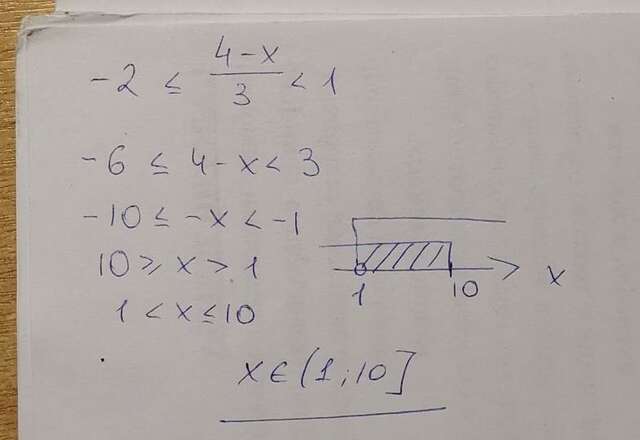 -2 ≤ (4-x)/3 < 1
-6 ≤ 4-x < 3
-10 ≤ -x < -1
10 ≥ x > 1
1 < x ≤ 10
1 10 x
x ∈ (1; 10]